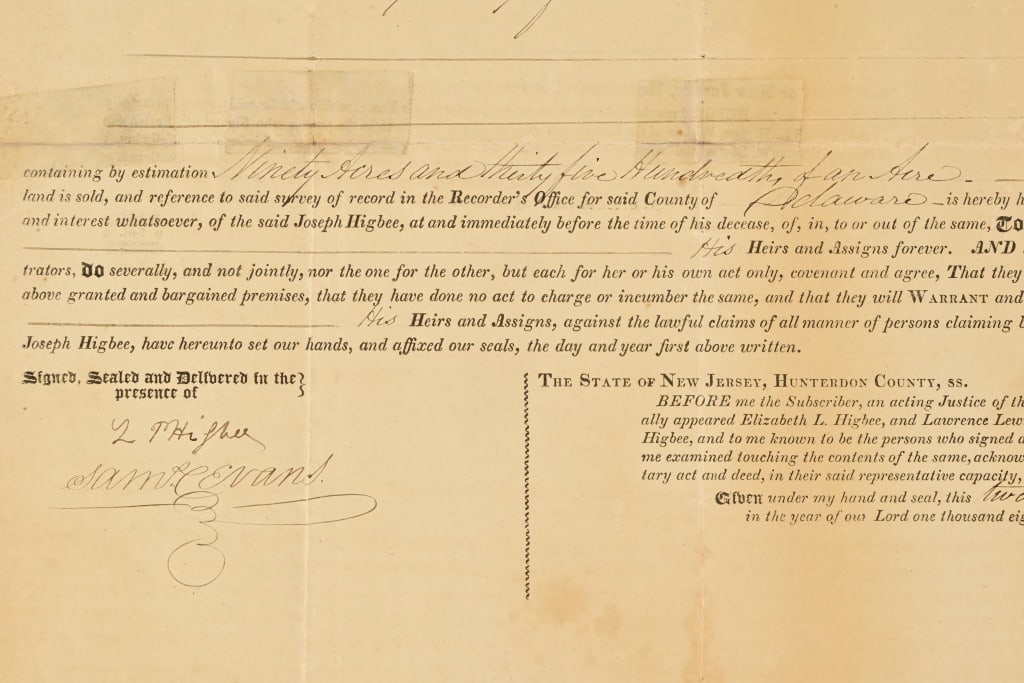 containing by estimation Ninety Acres and thirty five Hundredths of an Acre
land is sold, and reference to said survey of record in the Recorder's Office for said County of Delaware is hereby h
and interest whatsoever, of the said Joseph Higbee, at and immediately before the time of his decease, of, in, to or out of the same, TO
His Heirs and Assigns forever. AND
trators, Do severally, and not jointly, nor the one for the other, but each for her or his own act only, covenant and agree, That they
above granted and bargained premises, that they have done no act to charge or incumber the same, and that they will WARRANT and
His Heirs and Assigns, against the lawful claims of all manner of persons claiming b
Joseph Higbee, have hereunto set our hands, and affixed our seals, the day and year first above written.
Signed, Sealed and Delivered in the
presence of
Higbee
Saml C Evans.
THE STATE OF NEW JERSEY, HUNTERDON COUNTY, SS.
BEFORE me the Subscriber, an acting Justice of th
ally appeared Elizabeth L. Higbee, and Lawrence Lew
Higbee, and to me known to be the persons who signed a
me examined touching the contents of the same, acknow
tary act and deed, in their said representative capacity,
Given under my hand and seal, this two
in the year of our Lord one thousand eig